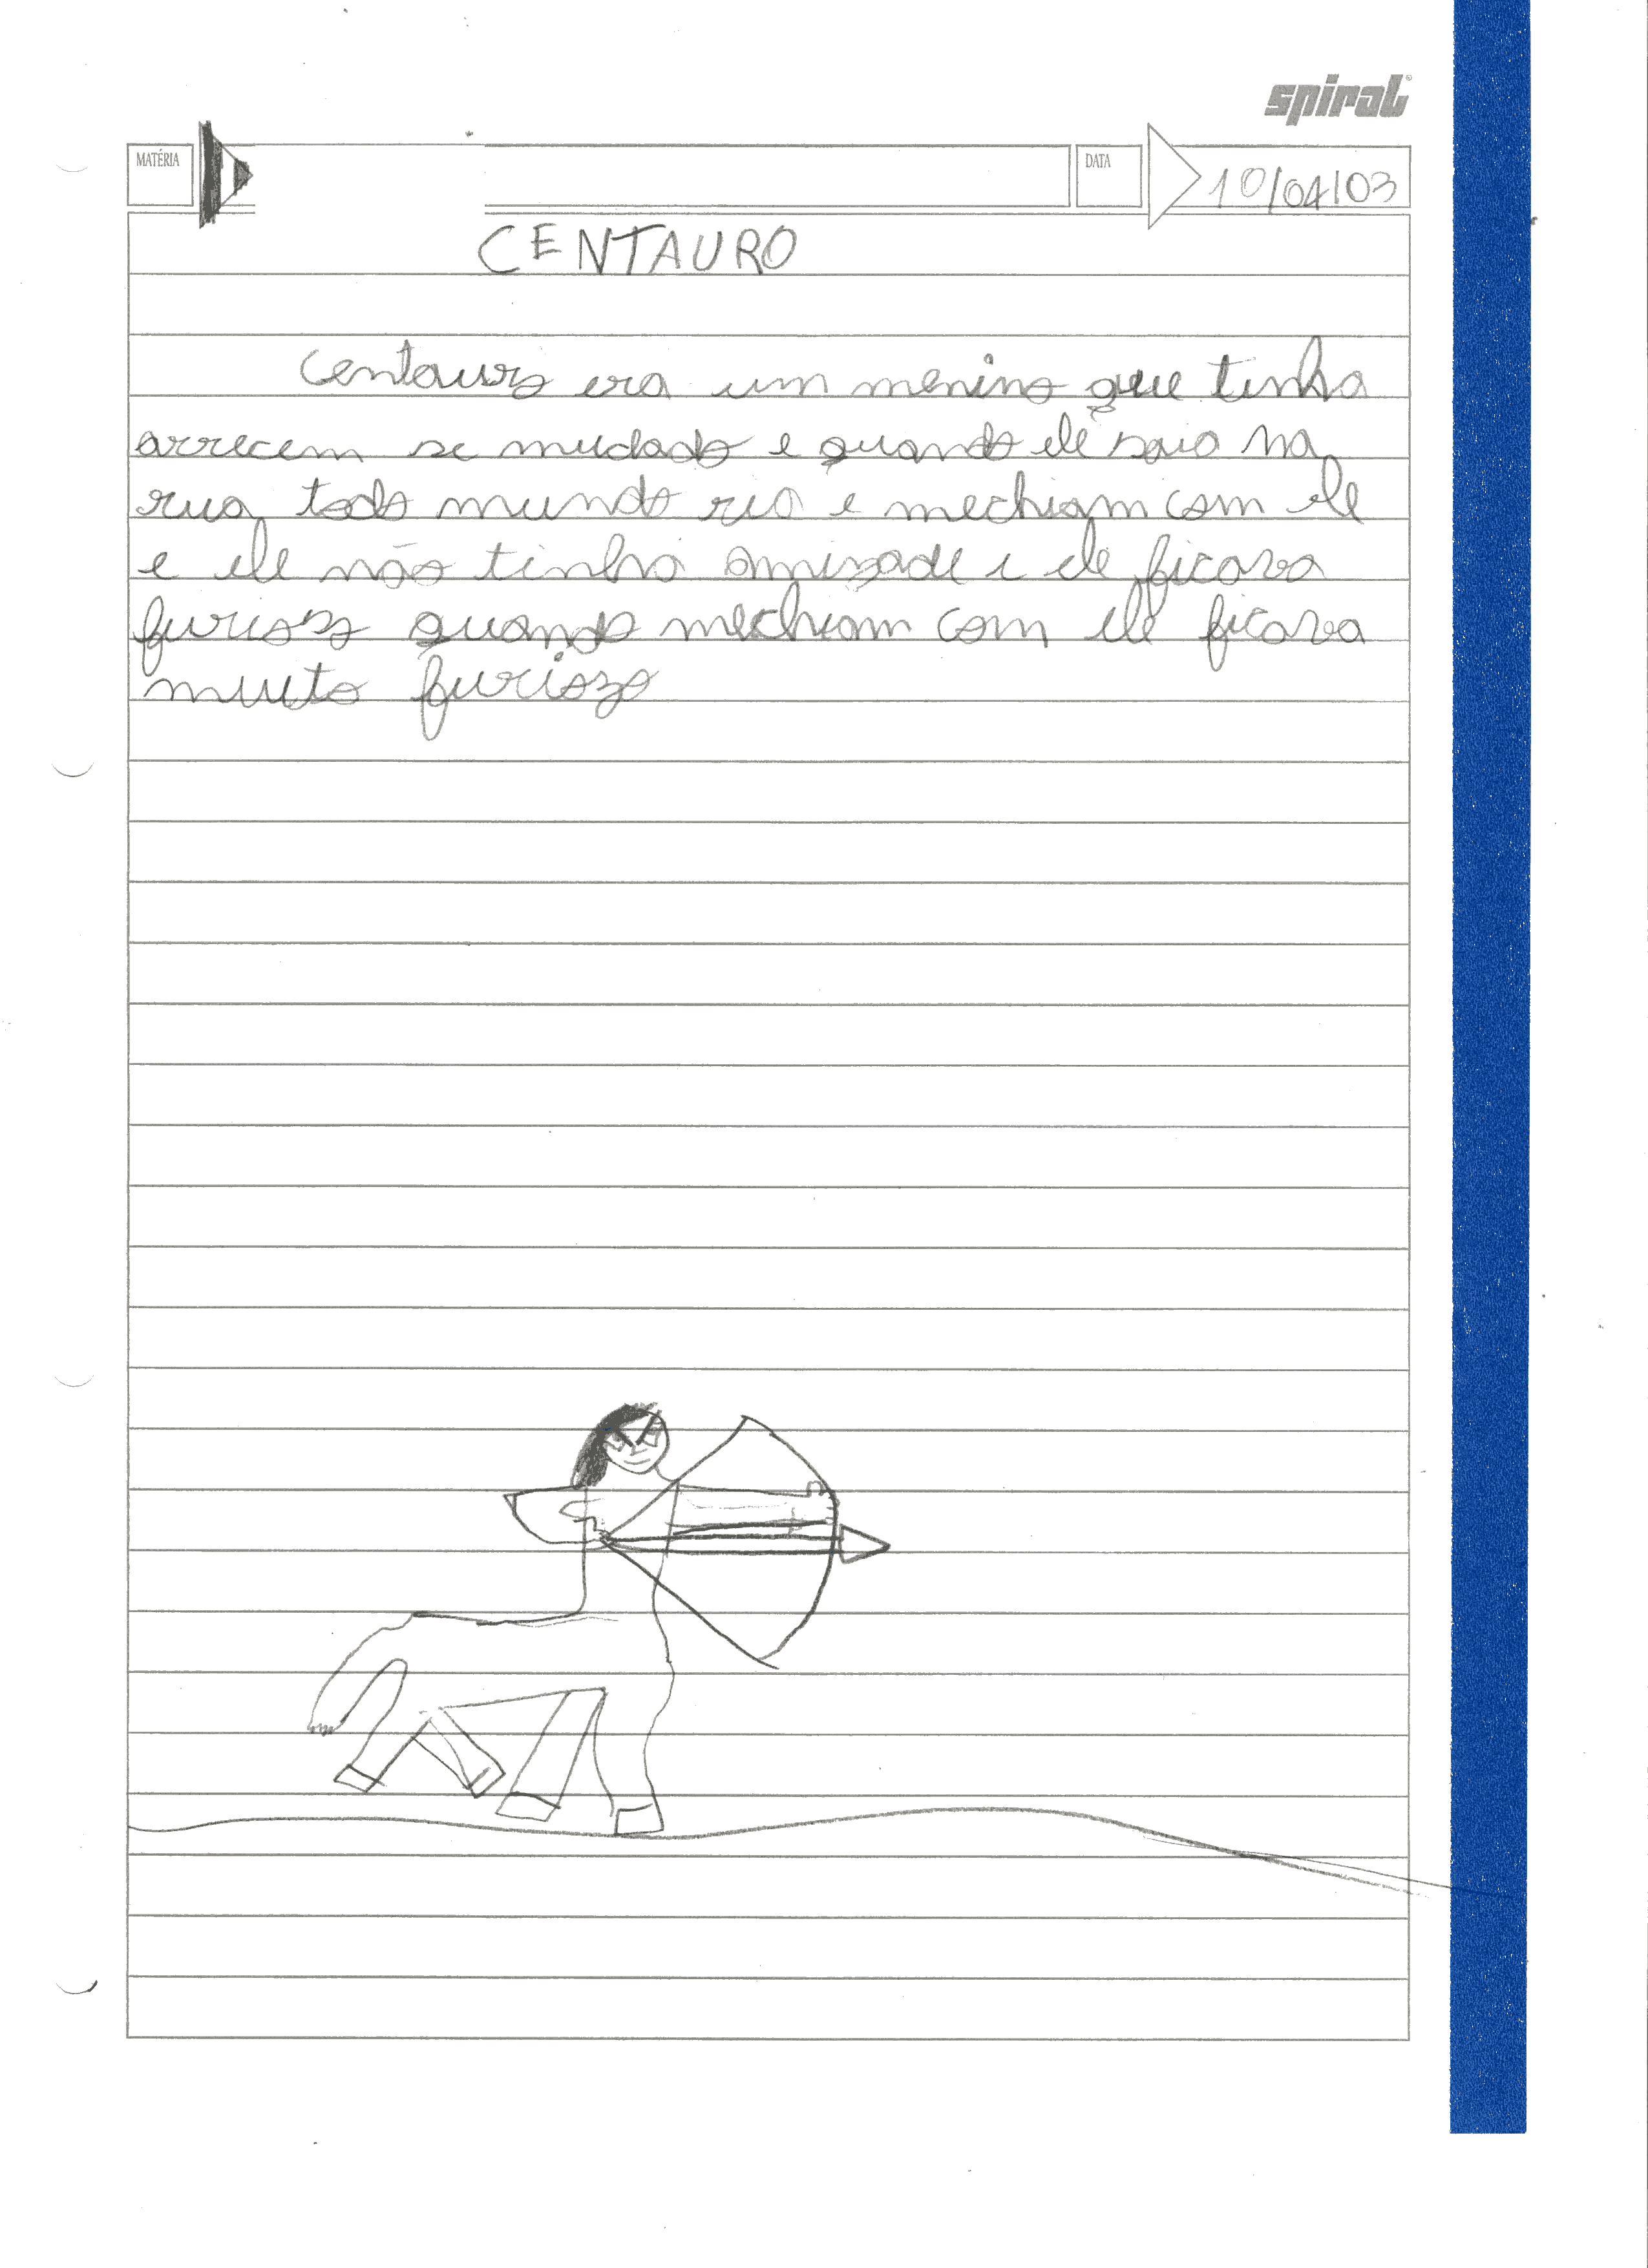 spiral
MATÉRIA
DATA 10/04/03
CENTAURO
Centauro era um menino que tinha
arrecem se mudado e quando ele saia na
rua todo mundo ria e mechiam com ele
e ele não tinha amizade e ele ficava
furioso quando mechiam com ele ficava
muito furiozo